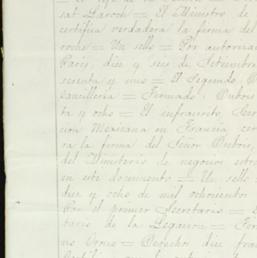 sat Laroch = El Ministro de
certifica verdadera la firma del
roche = Un sello = Por autorizac
Paris, diez y seis de Setiembre
sesenta y uno = El Segundo
sancilleria = Firmado. Dubois
ta y ocho = El infrascrito, Secre
cion Mexicana en Francia cer
ra la firma del Señor Dubois,
del Ministerio de negocios estra
en este documento = Un sello
diez y ocho de mil ochocientos
Por el primer Secretario =
tario de la Legacion = For
= Derecho diez fran